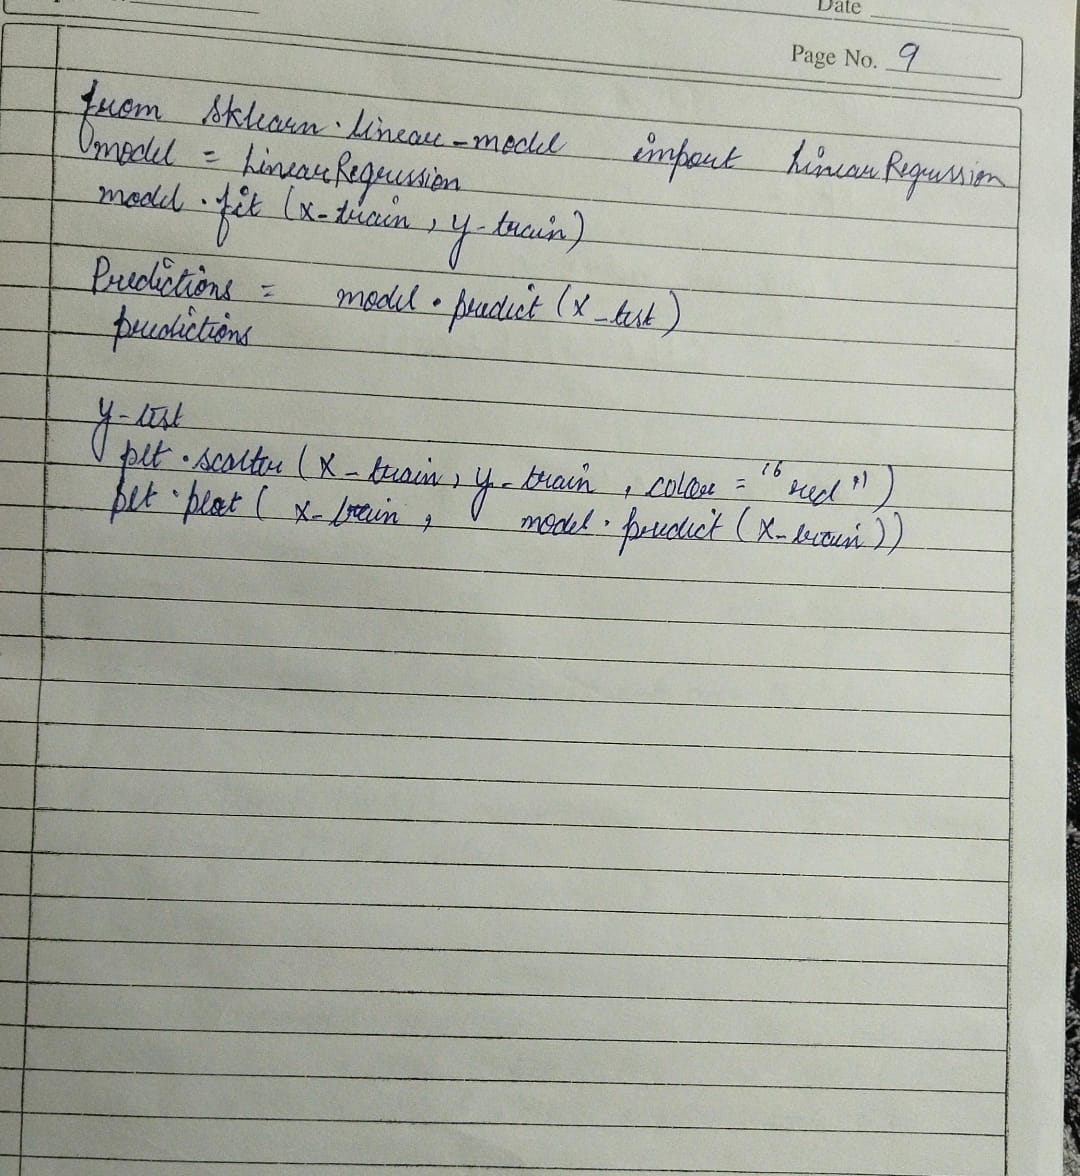 Date
Page No. 9
from sklearn.linear-model import LinearRegression
model = LinearRegression
model.fit (x-train, y-train)
Predictions = model.predict (x-test)
predictions
y-test
plt.scatter (x-train, y-train, color = "red")
plt.plot ( x-train, model.predict (x-train))